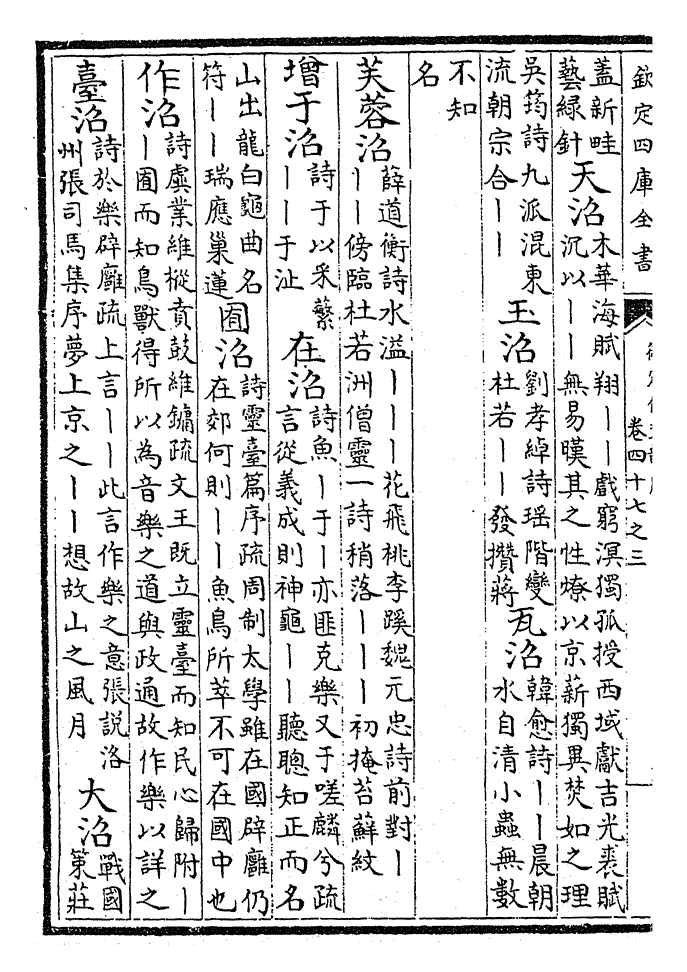 欽定四庫全書
卷四十七之三
蓋新畦
藝綠針
天沼
木華海賦翔丨丨戲窮溟獨孤授西域獻吉光裘賦
沉以丨丨無易暵其之性燎以京薪獨異焚如之理
吳筠詩九派混東
流朝宗合丨丨
玉沼
劉孝綽詩瑤階變
杜若丨丨發攢蔣
瓦沼
韓愈詩丨丨晨朝
水自清小蟲無數
不知
名
芙蓉沼
薛道衡詩水溢丨丨丨花飛桃李蹊魏元忠詩前對丨
丨丨傍臨杜若洲僧靈一詩稍落丨丨丨初掩苔蘚紋
增于沼
詩于以采蘩
丨丨于沚
在沼
詩魚丨于丨亦匪克樂又于嗟麟兮疏
言從義成則神龜丨丨聽聰知正而名
山出龍白龜曲名
符丨丨瑞應巢蓮
囿沼
詩靈臺篇序疏周制太學雖在國辟廱仍
在郊何則丨丨魚鳥所萃不可在國中也
作沼
詩虡業維樅賁鼓維鏞疏文王既立靈臺而知民心歸附丨
丨囿而知鳥獸得所以為音樂之道與政通故作樂以詳之
臺沼
詩於樂辟廱疏上言丨丨此言作樂之意張說洛
州張司馬集序夢上京之丨丨想故山之風月
大沼
戰國
策莊